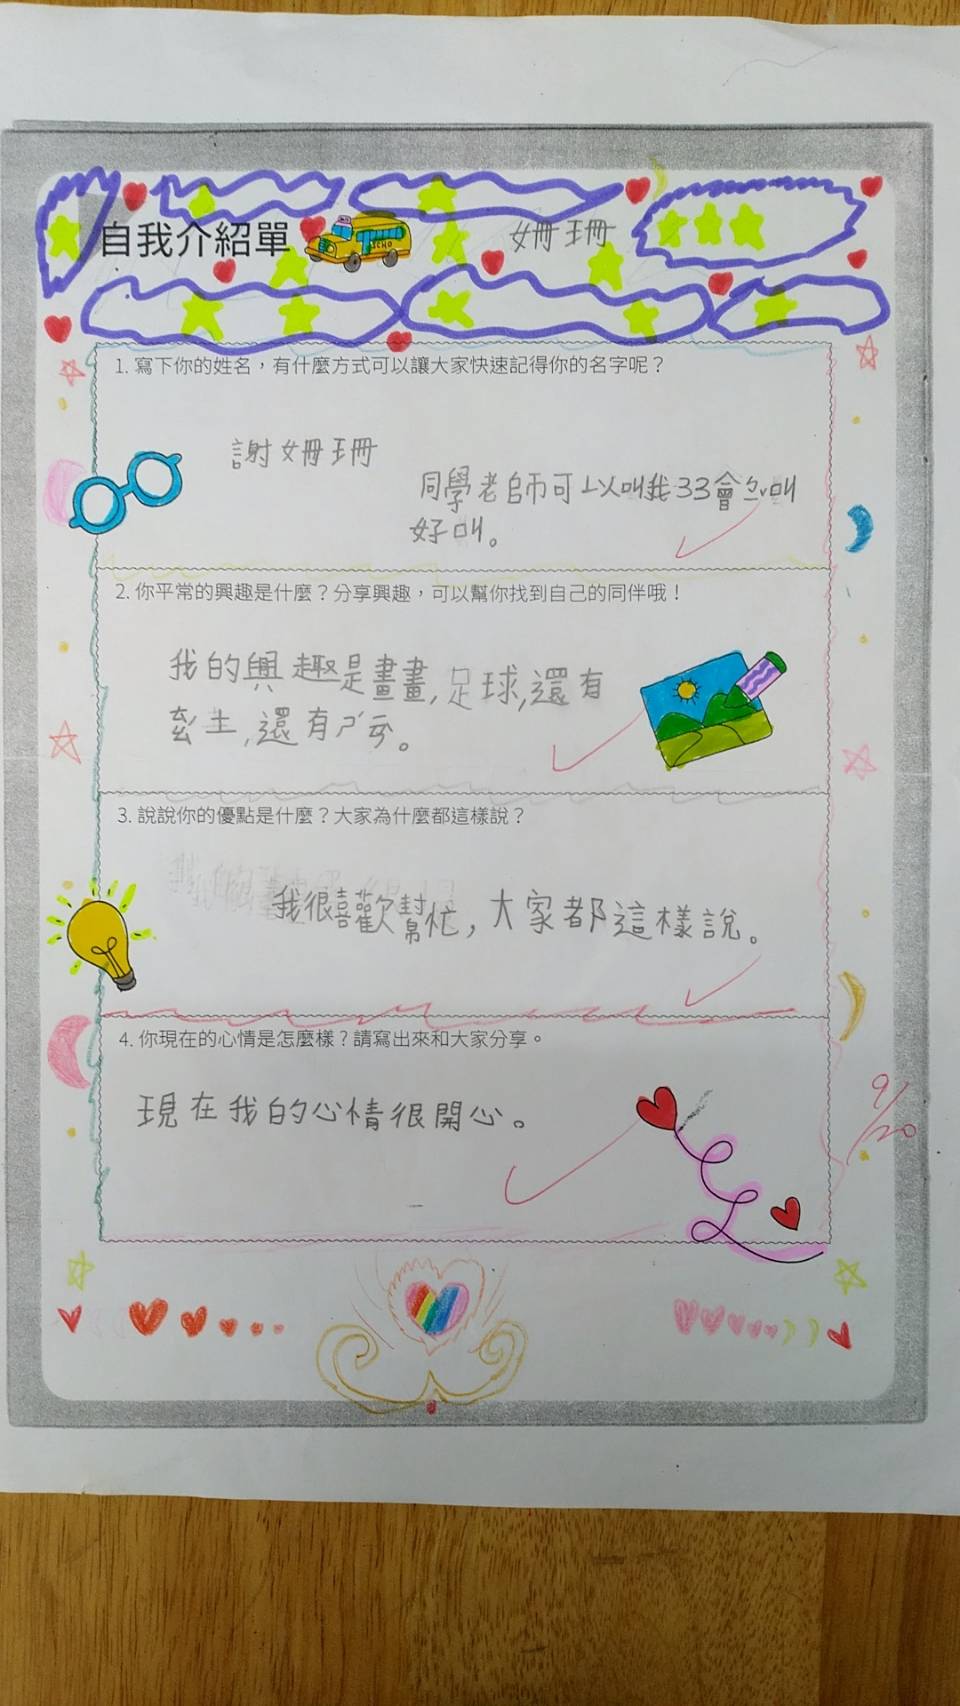 自我介紹單
SCHO
姍珊
1. 寫下你的姓名，有什麼方式可以讓大家快速記得你的名字呢？
謝姍珊
同學老師可以叫我33會ㄅㄠˇ叫
好叫。
2. 你平常的興趣是什麼？分享興趣，可以幫你找到自己的同伴哦！
我的興趣是畫畫,足球,還有
土,還有
3. 說說你的優點是什麼？大家為什麼都這樣說？
我很喜歡幫忙，大家都這樣說。
4. 你現在的心情是怎麼樣？請寫出來和大家分享。
現在我的心情很開心。
9/20